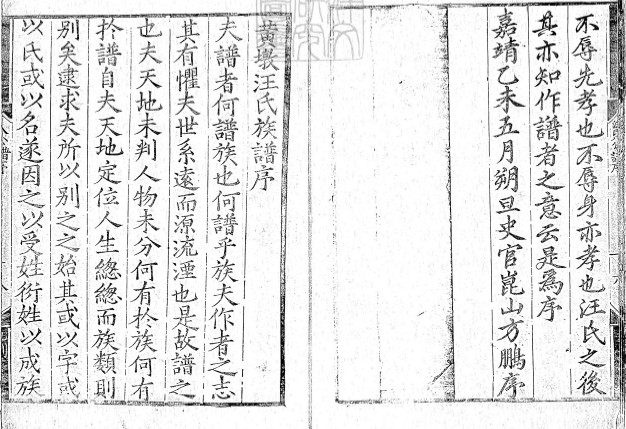 不辱先孝也不辱身亦孝也汪氏之後
其亦知作譜者之意云是為序
嘉靖乙未五月朔旦史官崑山方鵬序
黃墩汪氏族譜序
夫譜者何譜族也何譜乎族夫作者之志
其有懼夫世系遠而源流湮也是故譜之
也夫天地未判人物未分何有扵族何有
扵譜自夫天地定位人生緫緫而族類則
別矣逮求夫所以別之之始其或以字或
以氏或以名遂因之以受姓衍姓以成族